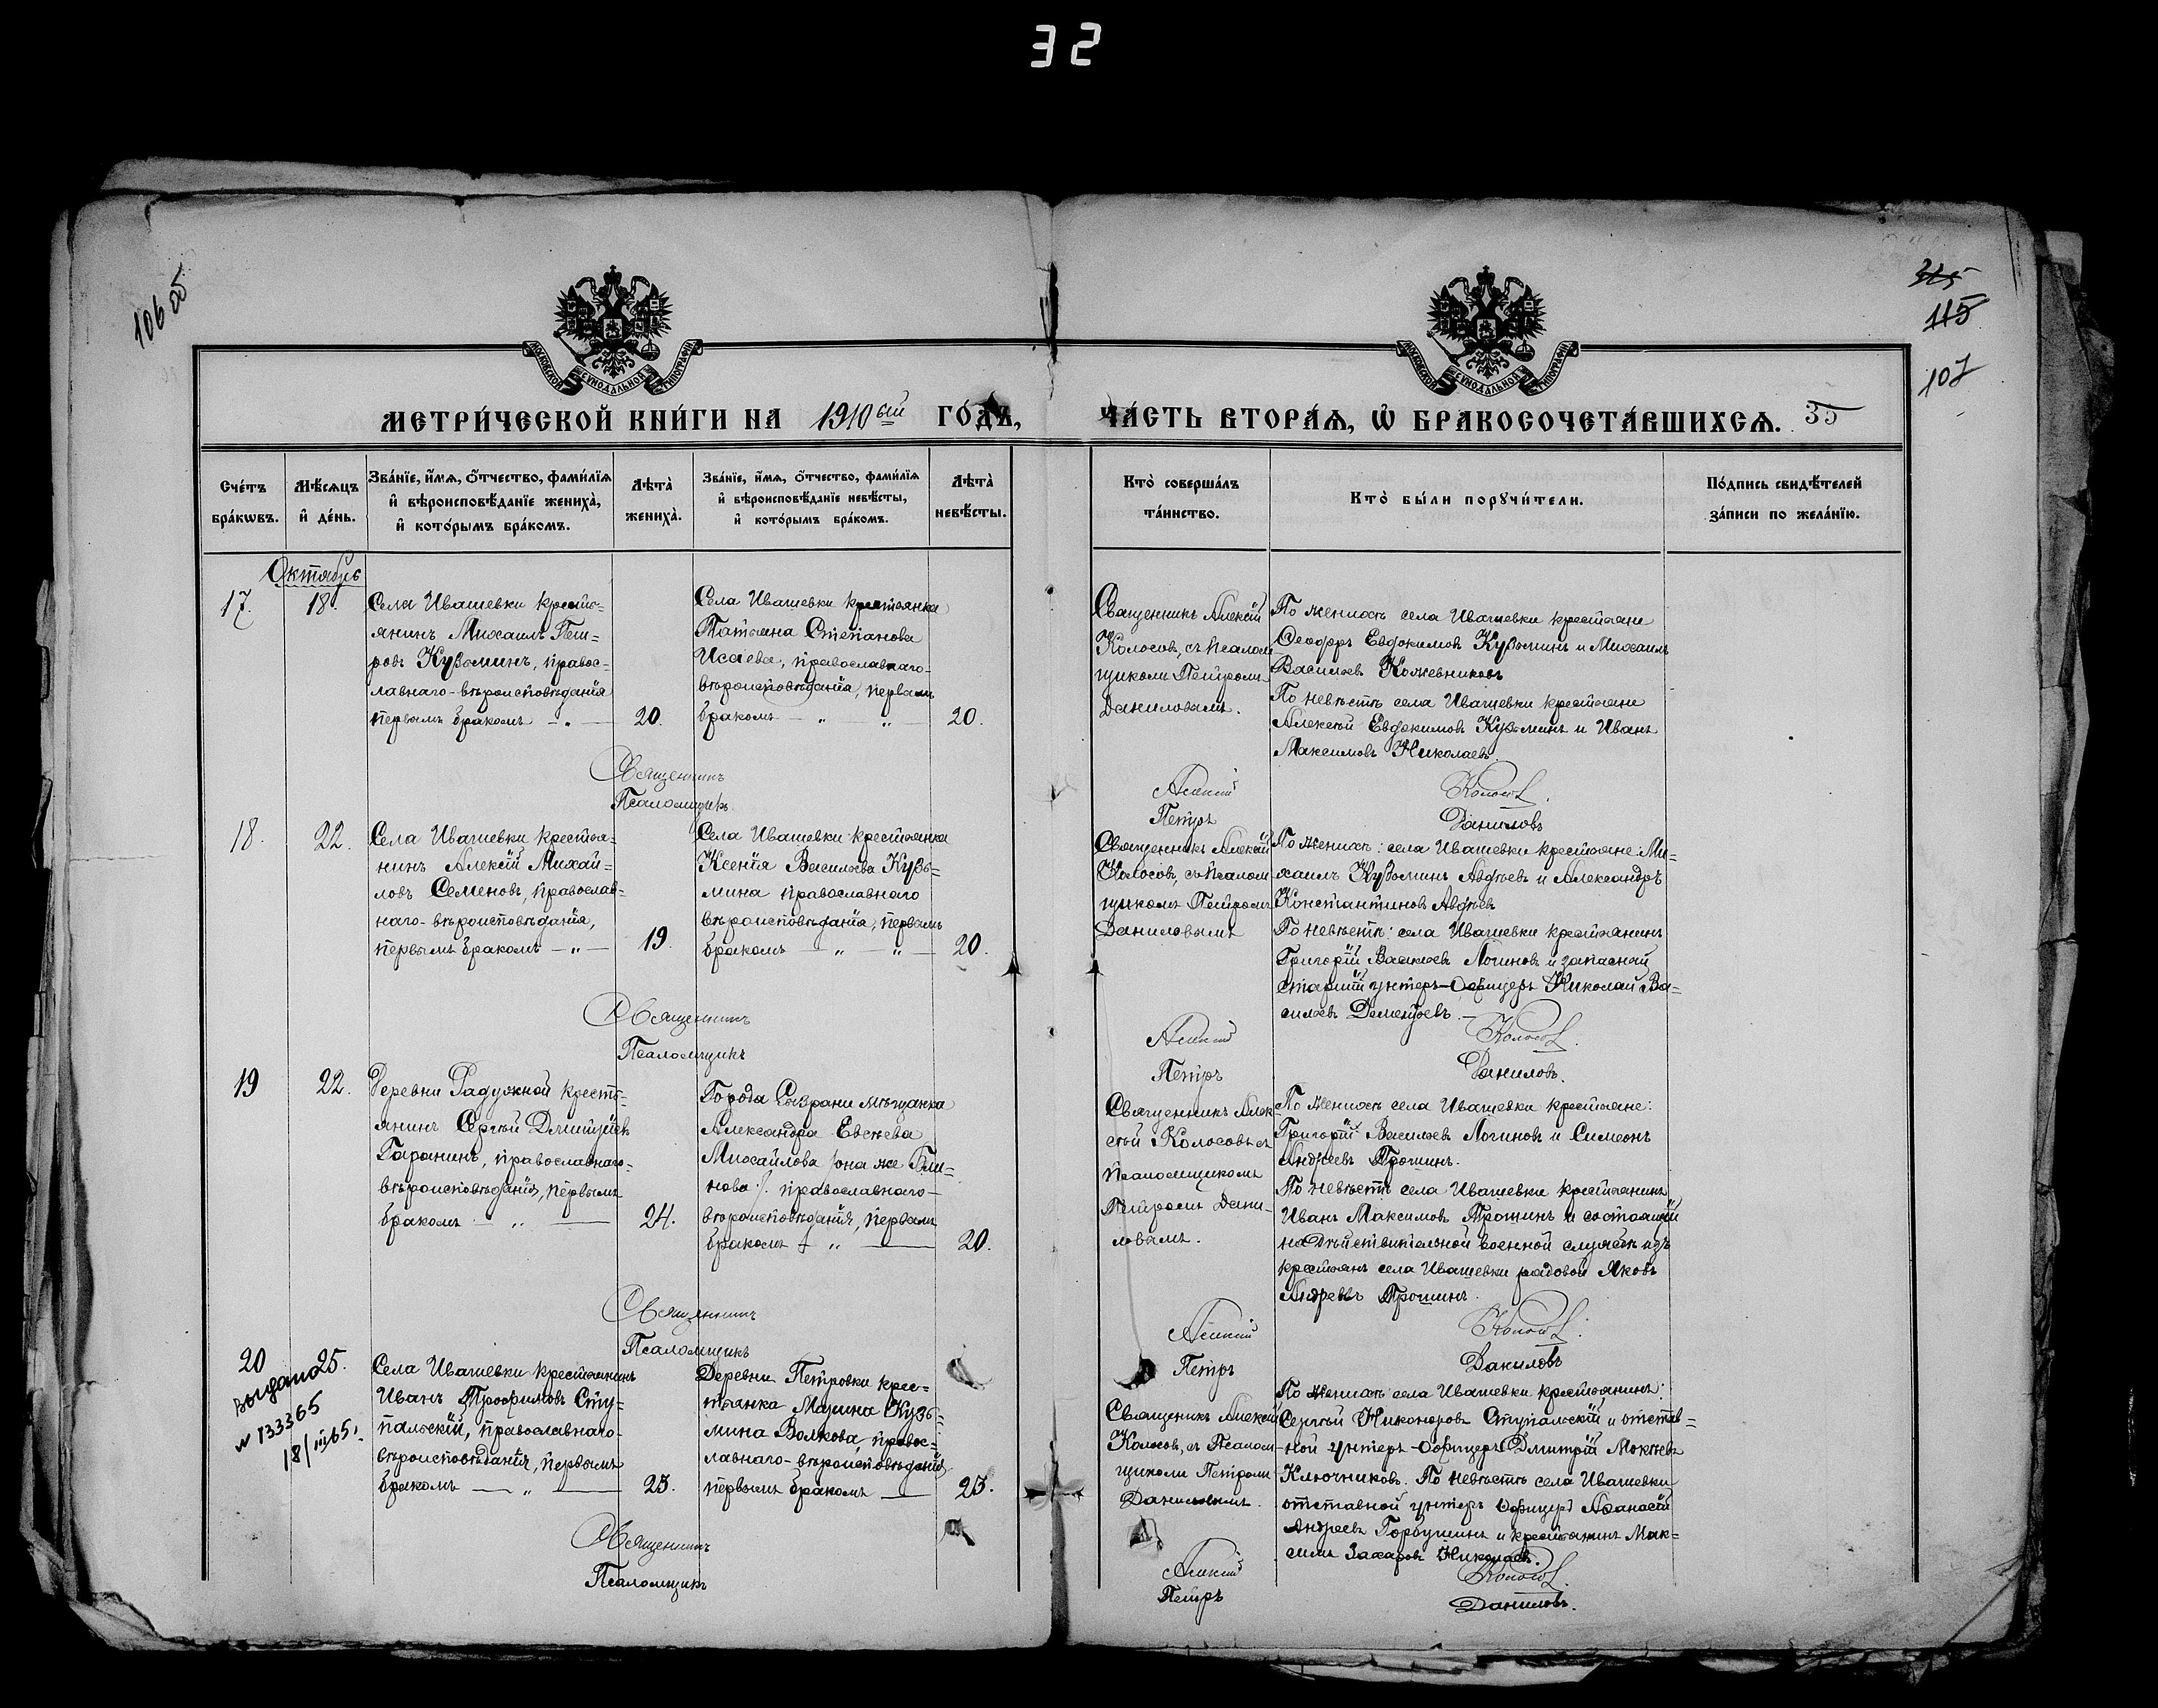 32
106 об
315
115
107
МОСКОВСКОЙ СѴНОДАЛЬНОЙ ТИПОГРАФІИ
МОСКОВСКОЙ СѴНОДАЛЬНОЙ ТИПОГРАФІИ
МЕТРИ́ЧЕСКОЙ КНИ́ГИ НА 1910 ый ГО́ДЪ, ЧА́СТЬ ВТОРА́Ѧ, Ѽ БРАКОСОЧЕТА́ВШИХСѦ. 35
Сче́тъ
бра́кѡвъ.
Мѣ́сѧцъ
и҆ де́нь.
Зва́нїе, и҆́мѧ, ѻ҆́тчество, фами́лїѧ
и҆ вѣроисповѣ́данїе жениха̀,
и҆ кото́рымъ бра́комъ.
Лѣта̀
жениха̀.
Зва́нїе, и҆́мѧ, ѻ҆́тчество, фами́лїѧ
и҆ вѣроисповѣ́данїе невѣ́сты,
и҆ кото́рымъ бра́комъ.
Лѣта̀
невѣ́сты.
Кто̀ соверша́лъ
та́инство.
Кто̀ бы́ли порꙋчи́тели.
По́дпись свидѣ́телей
за́писи по жела́нїю.
Октябрь
17.
18.
Села Ивашевки кресть-
янинъ Михаилъ Пет-
ровъ Кузьминъ, правос-
лавнаго-вѣроисповѣданія
первымъ бракомъ — „ —
20.
Села Ивашевки крестьянка
Татьяна Степанова
Исаева, православнаго-
вѣроисповѣданія, первымъ
бракомъ — „ „ —
20.
Священникъ Алексій
Колосов, съ псалом
щикомъ Петромъ
Даниловымъ.
По женихѣ села Ивашевки крестьяне
Ѳеодоръ Евдокимовъ Кузьминъ и Михаилъ
Васильевъ Кожевниковъ
По невѣстѣ села Ивашевки крестьяне
Алексѣй Евдокимовъ Кузьминъ и Иванъ
Максимовъ Николаевъ.
Священникъ Алексій Колосов.
Псаломщикъ Петръ Даниловъ
18.
22.
Села Ивашевки крестья-
нинъ Алексій Михай-
ловъ Семеновъ, православ-
наго-вѣроисповѣданія,
первымъ бракомъ — „ —
19.
Села Ивашевки крестьянка
Ксенія Васильева Кузь-
мина православнаго
вѣроисповѣданія, первымъ
бракомъ — „ — „ —
20.
Священникъ Алексій
Колосов, съ псалом
щикомъ Петромъ
Даниловымъ
По женихѣ: села Ивашевки крестьяне: Ми-
хаилъ Кузьминъ Авдѣевъ и Александръ
Константиновъ Авдѣевъ
По невѣстѣ: села Ивашевки крестьянинъ
Григорій Васильевъ Логиновъ и запасной
старшій унтеръ-офицеръ Николай Ва-
сильевъ Дементьевъ. —
Священникъ Алексій Колосов.
Псаломщикъ Петръ Даниловъ.
19
22.
Деревни Радужной кресть-
янинъ Сергѣй Дмитріевъ
Гаранинъ, православнаго-
вѣроисповѣданія, первымъ
бракомъ — „ —
24.
Города Сызрани мѣщанка
Александра Евсѣева
Михайлова /она же Бли-
нова/. православнаго-
вѣроисповѣданія, первымъ
бракомъ — „ —
20.
Священникъ Алек-
сѣй Колосовъ съ
псаломщикомъ
Петромъ Дани-
ловымъ.
По женихѣ села Ивашевки крестьяне:
Григорій Васильевъ Логиновъ и Симеонъ
Андреевъ Трошинъ.
По невѣстѣ села Ивашевки крестьянинъ
Иванъ Максимовъ Трошинъ и состоящій
на дѣйствительной военной службѣ изъ
крестьянъ села Ивашевки рядовой Яковъ
Андреевъ Трошинъ.
Священникъ Алексій Колосов.
Псаломщикъ Петръ Даниловъ
20
25.
Выдано
№ 133365
18/III 65 г.
Села Ивашевки крестьянинъ
Иванъ Трофимовъ Сту-
пальскій, православнаго-
вѣроисповѣданія, первымъ
бракомъ — „ —
23.
Деревни Петровки крес-
тьянка Марина Кузь-
мина Волкова, правос-
лавнаго-вѣроисповѣданія
первымъ бракомъ —
23.
Священикъ Алексій
Колосов, съ Псалом-
щикомъ Петромъ
Даниловымъ.
По женихѣ села Ивашевки крестьянинъ:
Сергѣй Никоноровъ Ступальскій и отстав-
ной унтеръ-офицеръ Дмитрій Мокѣевъ
Ключниковъ. По невѣстѣ села Ивашевки
отставной унтеръ офицеръ Аѳанасій
Андреевъ Горбушинъ и крестьянинъ Мак-
симъ Захаровъ Николаевъ.
Священникъ Алексій Колосов.
Псаломщикъ Петръ Даниловъ.